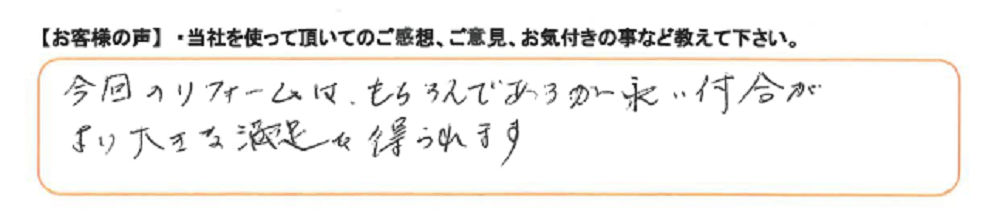 【お客様の声】・当社を使って頂いてのご感想、ご意見、お気付きの事など教えて下さい。
今回のリフォームは、もちろんであるが永い付合が
より大きな満足を得られます